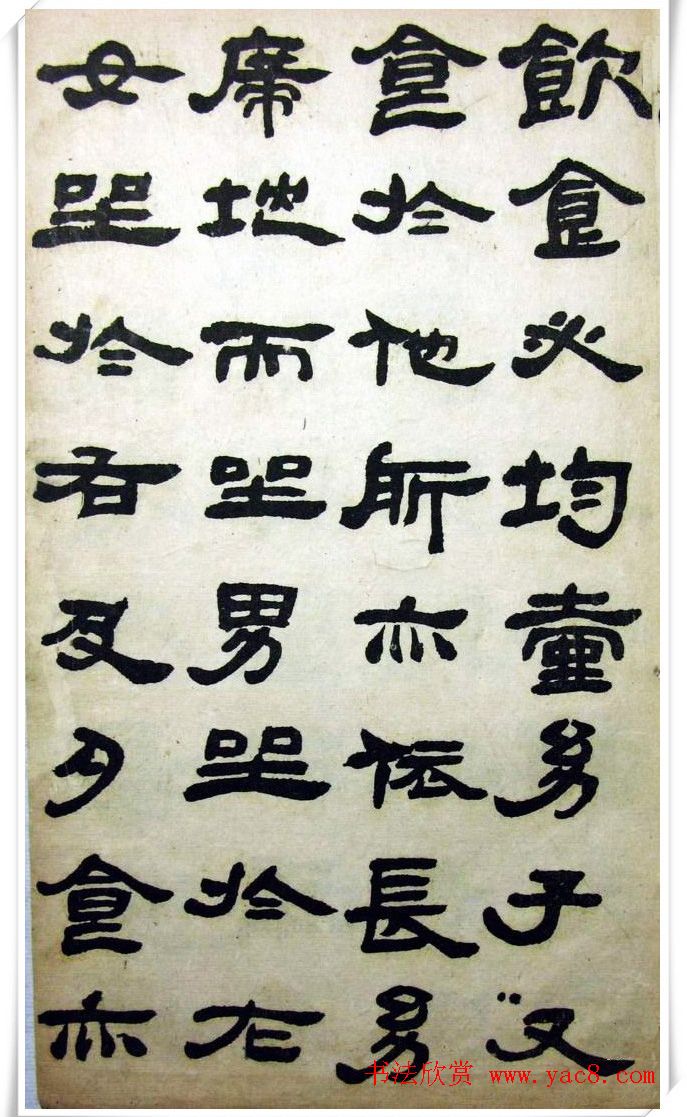 飲食必均壹幼子又
食於他所亦依長幼
席地而坐男坐於左
女坐於右及夕食亦
书法欣赏 www.yac8.com